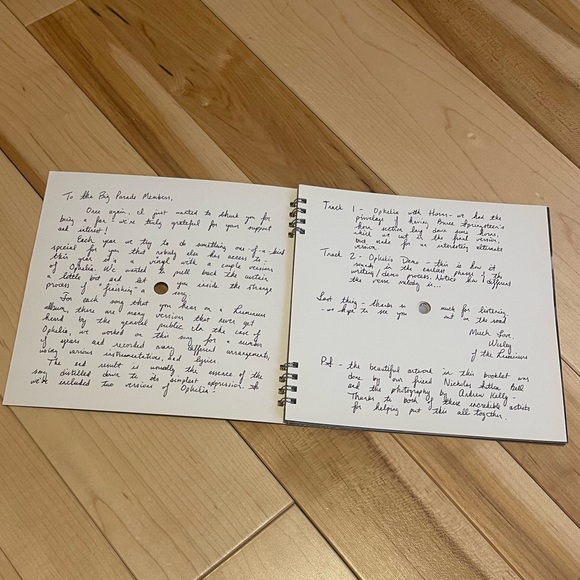 To the Big Parade Members,
Once again, I just wanted to thank you for
being a fan - we're truly grateful for your support
and interest!
Each year we try to do something one-of-a-kind
special for you that nobody else has access to -
this year it's a vinyl with a couple versions
of Ophelia. We wanted to pull back the curtain
a little bit and let you inside the strange
process of "finishing" a song.
For each song that you hear on a Lumineers
album, there are many versions that never get
heard by the general public. In the case of
Ophelia, we worked on this song for a number
of years and recorded many different arrangements,
using various instrumentation, and lyrics.
The end result is usually the essence of the
song distilled down to its simplest expression. So
we've included two versions of Ophelia!
Track 1 - Ophelia with Horns - we had the
privilege of having Bruce Springsteen's
horn section lay down some horns,
which we cut in the final version,
but made for an interesting alternate
version
Track 2 - Ophelia Demo - this is how it
sounded in the earliest phases of the
writing/demo process. Notice how different
the verse melody is...
Last thing - thanks so much for listening
- we hope to see you out on the road.
Much Love,
Wesley
of the Lumineers
P.S. - the beautiful artwork in this booklet was
done by our friend Nicholas Sutton Bell
and the photography by Andrew Kelly -
Thanks to both of these incredible artists
for helping put this all together.